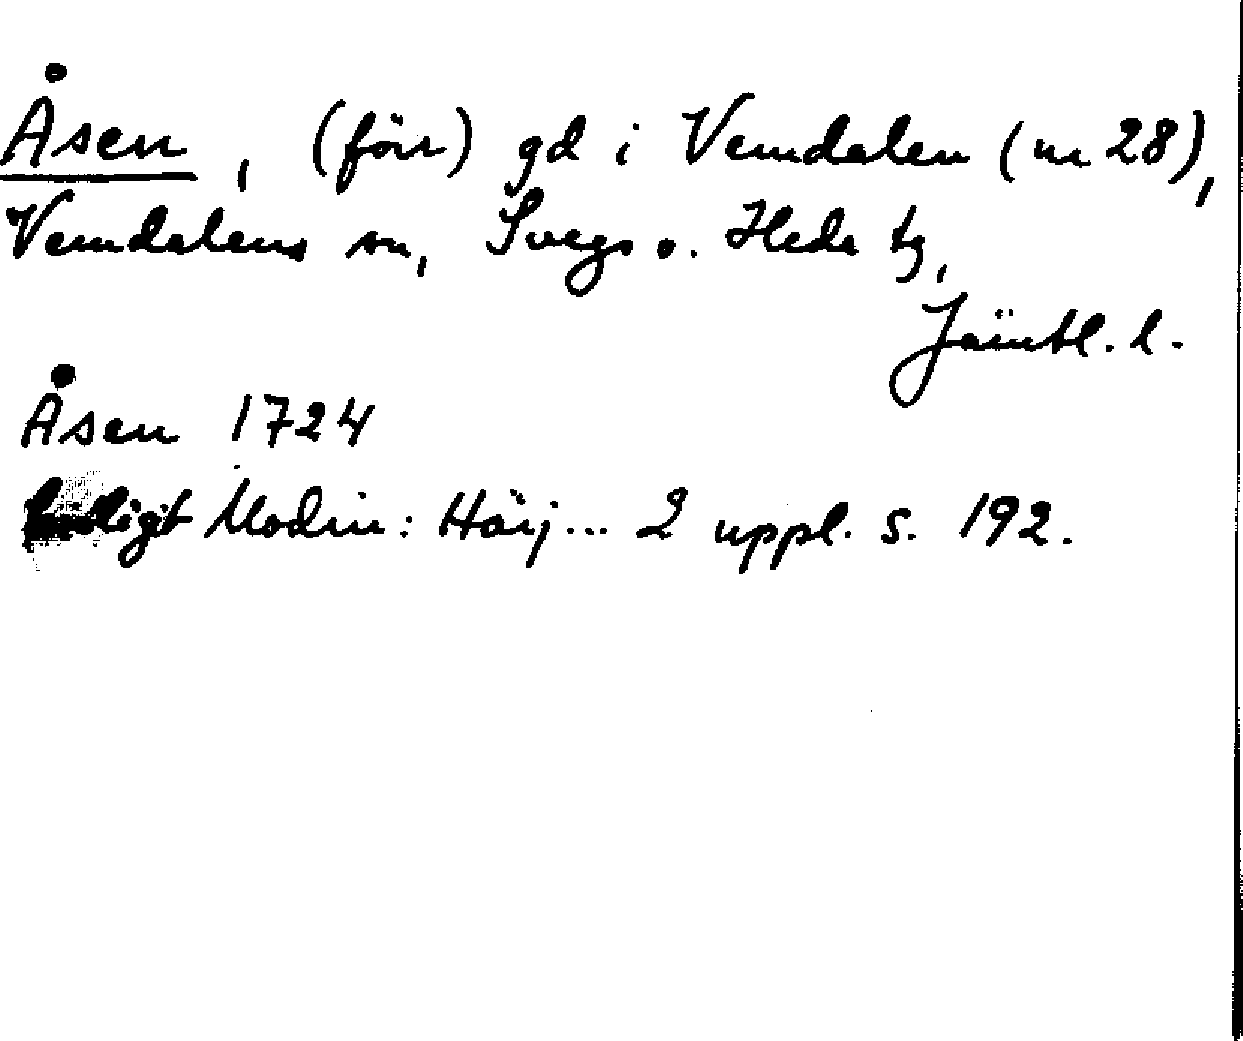 Åsen, (förr) gd i Vemdalen (nr 28),
Vemdalens sn, Svegs o. Heds tg,
Jämtl. l.
Åsen 1724
enligt Modin: Härj... 2 uppl. s. 192.